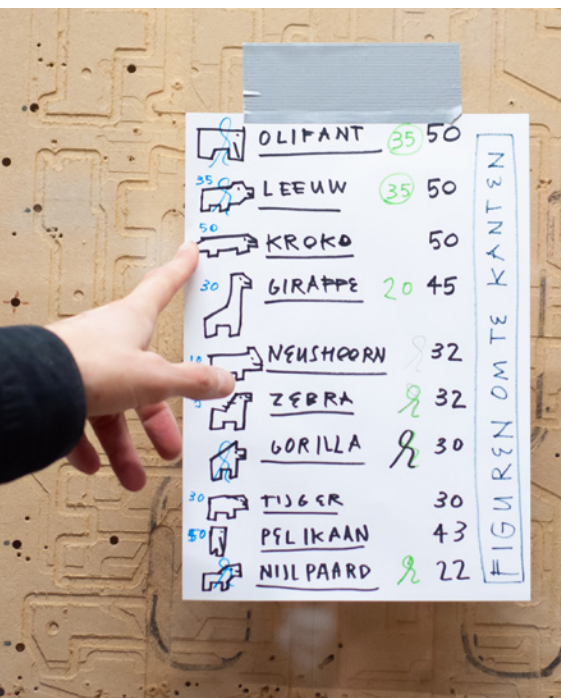 OLIFANT 35 50
35 LEEUW 35 50
50 KROKO 50
30 GIRAPPE 20 45
10 NEUSHOORN 32
ZEBRA 32
GORILLA 30
30 TIJGER 30
50 PELIKAAN 43
NIJLPAARD 22
FIGUREN OM TE KANTEN